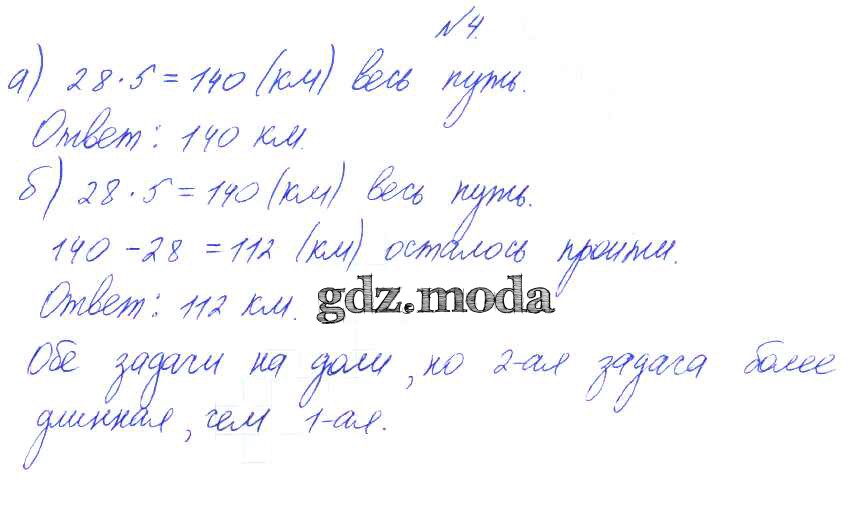 №4.
а) 28·5=140 (км) весь путь.
Ответ: 140 км.
б) 28·5=140 (км) весь путь.
140-28=112 (км) осталось пройти.
Ответ: 112 км.
gdz.moda
Обе задачи на доли, но 2-ая задача более
длинная, чем 1-ая.